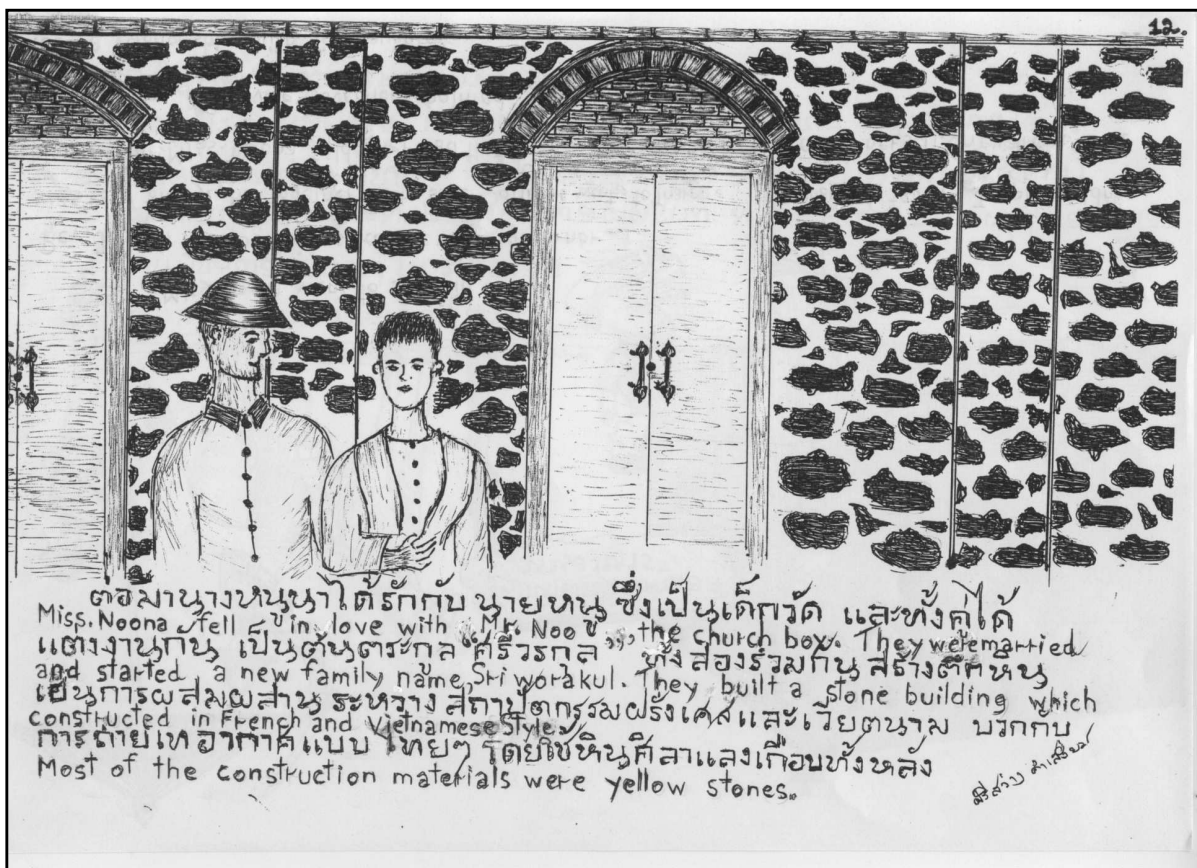 12.
ต่อมานางหนูนาได้รักกับ นายหนู ซึ่งเป็นเด็กวัด และทั้งคู่ได้
Miss. Noona fell in love with Mr. Noo, the church boy. They were married
แต่งงานกัน เป็นต้นตระกูล "ศรีวรกุล" ทั้งสองร่วมกัน สร้างตึกหิน
and started a new family name, Sri worakul. They built a stone building which
เป็นการผสมผสาน ระหว่าง สถาปัตกรรมฝรั่งเศสและเวียตนาม บวกกับ
constructed in French and Vietnamese Style.
การถ่ายเทอากาศแบบ ไทยๆ โดยใช้หินศิลาแลงเกือบทั้งหลัง
Most of the construction materials were yellow stones.